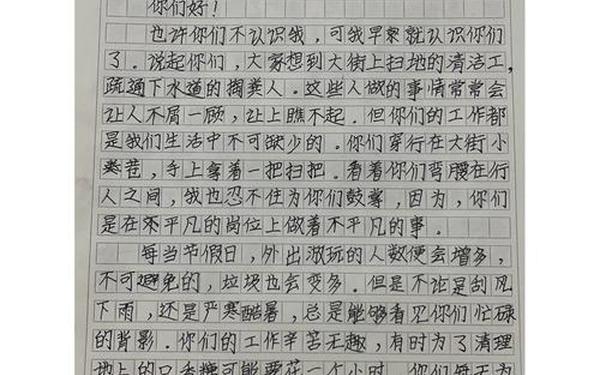 你们好！
也许你们不认识我，可我早就认识你们
了．说起你们，大家想到大街上扫地的清洁工，
疏通下水道的掏粪人．这些人做的事情常常会
让人不屑一顾，让上瞧不起．但你们的工作都
是我们生活中不可缺少的．你们穿行在大街小
巷，手上拿着一把扫把．看着你们弯腰在行
人之间，我也忍不住为你们鼓掌，因为，你们
是在平凡的岗位上做着不平凡的事．
每当节假日，外出游玩的人数便会增多，
不可避免的，垃圾也会变多．但是不论是刮风
下雨，还是严寒酷暑，总是能够看见你们忙碌
的背影．你们的工作辛苦无趣，有时为了清理
地上的口香糖可能要花一个小时．你们每天为